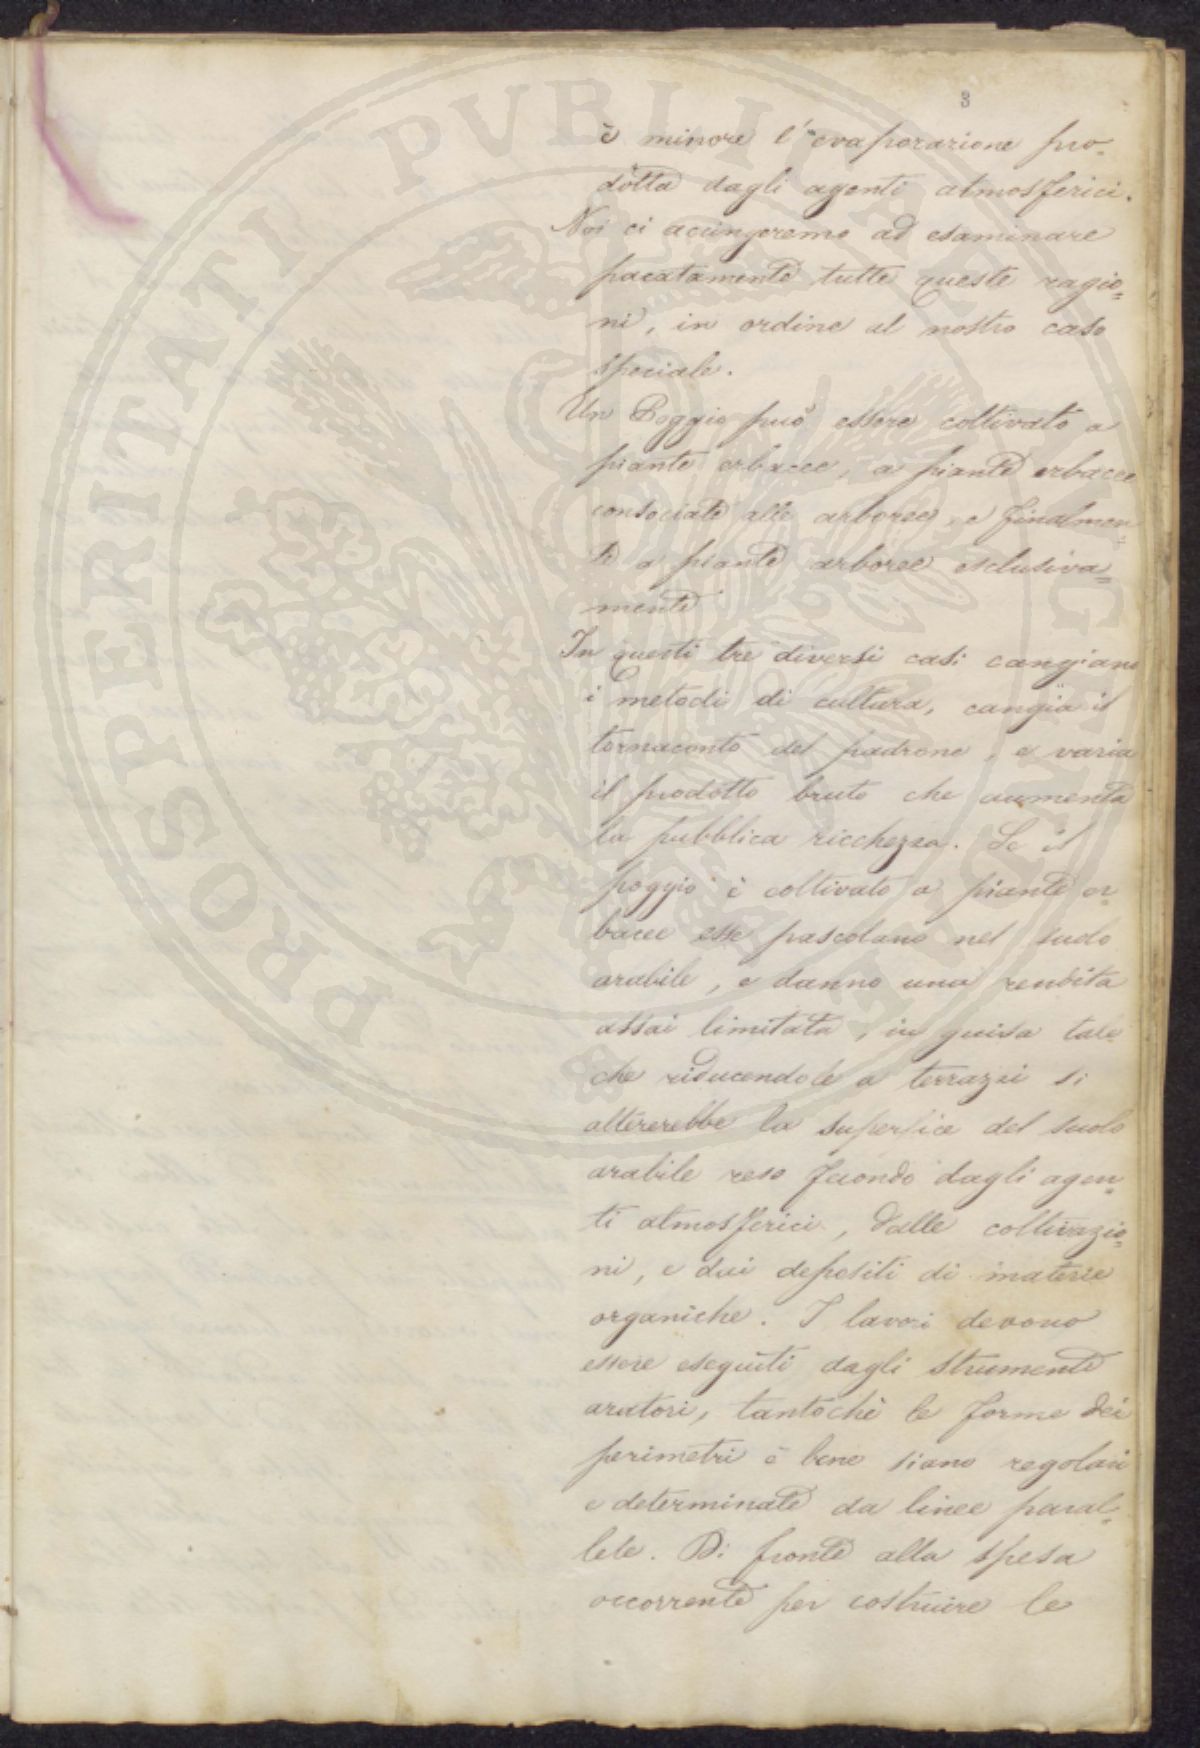 3
è minore l'evaporazione pro=
dotta dagli agenti atmosferici.
Noi ci accingeremo ad esaminare
pacatamente tutte queste ragio=
ni, in ordine al nostro caso
speciale.
Un Poggio può essere coltivato a
piante erbacee, a piante erbacee
consociate alle arboree, e finalmen=
te a piante arboree esclusiva=
mente
In questi tre diversi casi cangiano
i metodi di cultura, cangia il
tornaconto del padrone, e varia
il prodotto bruto che aumenta
la pubblica ricchezza. Se il
poggio è coltivato a piante er=
bacee esse pascolano nel suolo
arabile, e danno una rendita
assai limitata, in guisa tale
che riducendole a terrazzi si
altererebbe la superfice del suolo
arabile reso fecondo dagli agen=
ti atmosferici, dalle coltivazio=
ni, e dai depositi di materie
organiche. I lavori devono
essere eseguiti dagli strumenti
aratori, tantochè le forme dei
perimetri è bene siano regolari
e determinate da linee paral=
lele. Di fronte alla spesa
occorrente per costruire le
PROSPERITATI PVBLICAE AVGENDAE